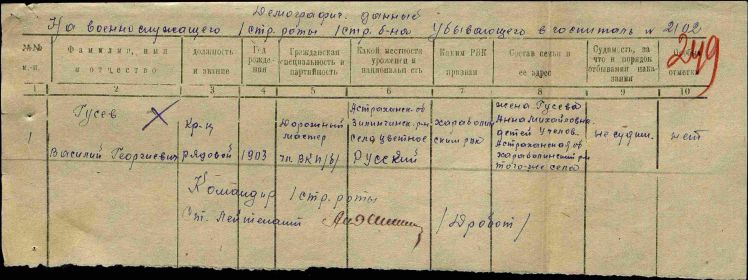 Демографич. данные
На военнослужащего 1 стр. роты 1 стр. б-на убывающего в госпиталь № 2102
249
№№ п.п.
Фамилия, имя и отчество
Должность и звание
Год рождения
Гражданская специальность и партийность
Какой местности уроженец и национальность
Каким РВК призван
Состав семьи и ее адрес
Судимость, за что и порядок отбывания наказания
отметки
1 2 3 4 5 6 7 8 9 10
1
Гусев
Василий Георгиевич
Кр-ц
рядовой
1903
Дорожный
мастер
чл. ВКП/б/
Астраханск. об
села Цветное
Русский
Харабалин
ским рвк
жена Гусева
Анна Михайловна
детей 4 челов.
Астраханская об
Харабалинский р-н
того-же села
не судим.
нет
Командир 1 стр. роты
Ст. Лейтенант / Дробот /